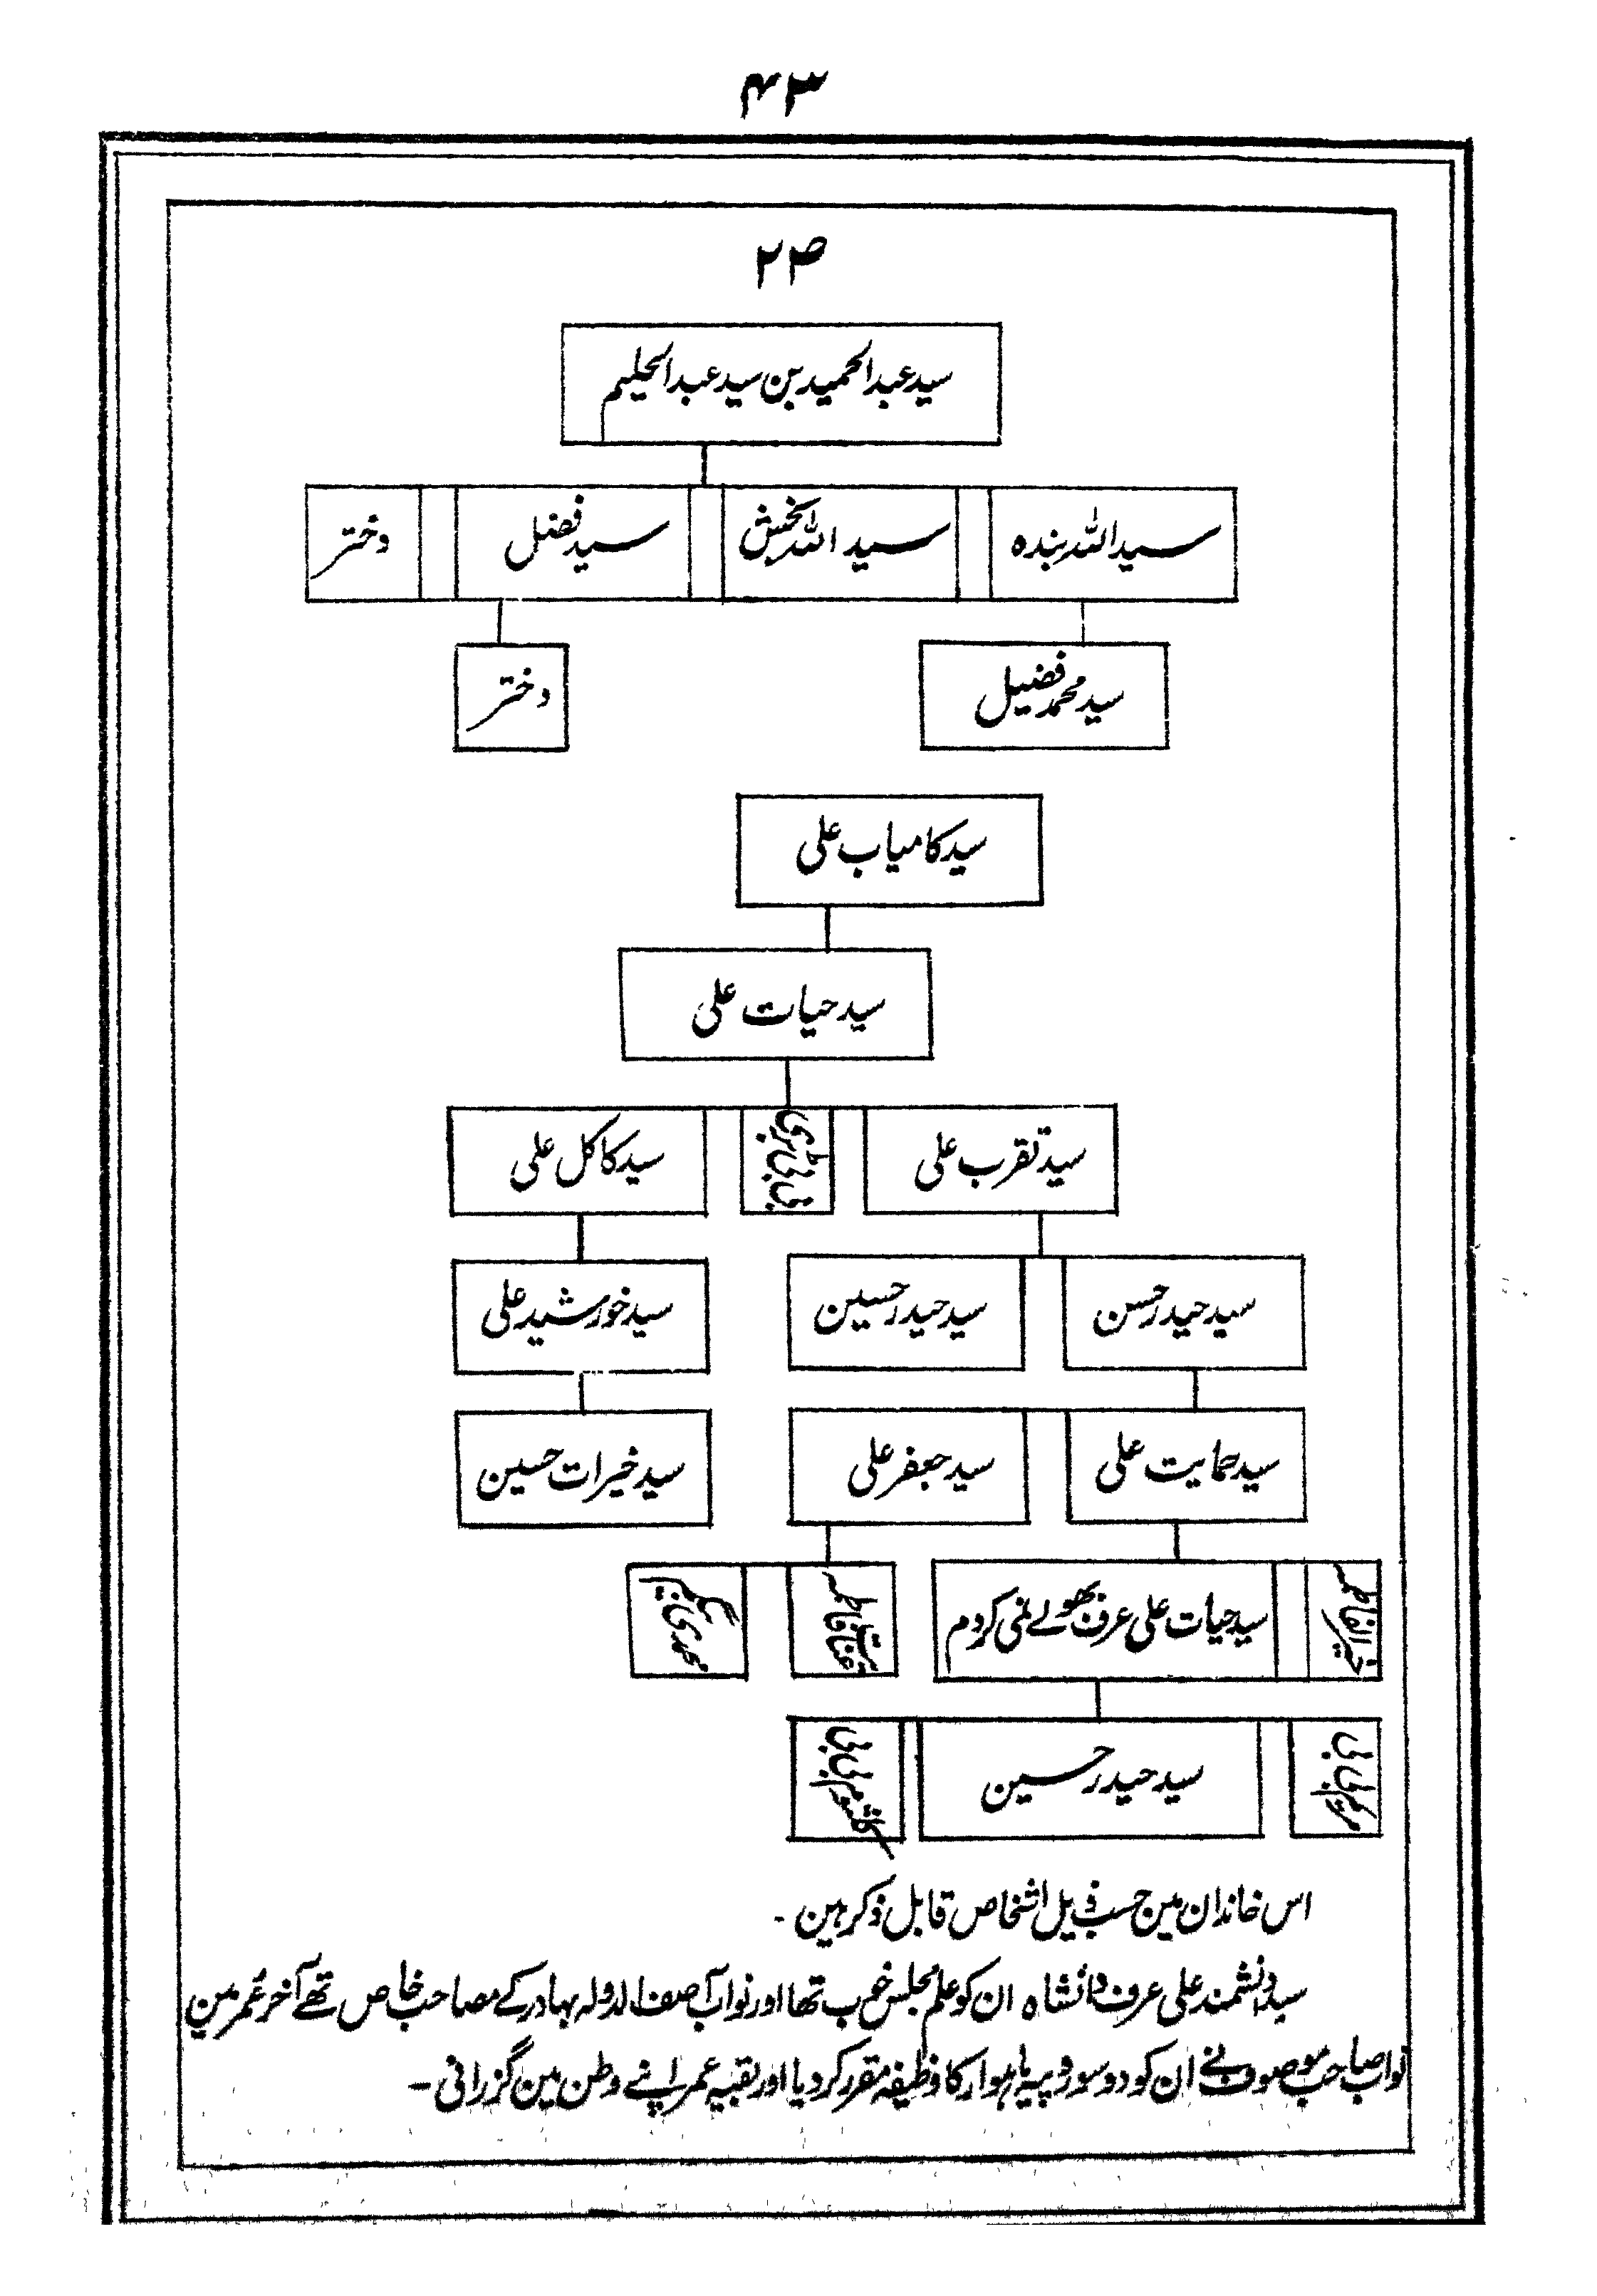 ۴۳
۲۴
سید عبدالحمید بن سید عبدالحلیم
سید اللہ بندہ
سید اللہ بخش
سید فضل
دختر
سید محمد فضیل
دختر
سید کامیاب علی
سید حیات علی
سید تقرب علی
سید کاکل علی
سید حیدر حسن
سید حیدر حسین
سید خورشید علی
سید حمایت علی
سید جعفر علی
سید خیرات حسین
سید حیات علی عرف بھولے
محمدی بیگم
سید حیدر حسین
اس خاندان مین حسب ذیل اشخاص قابل ذکر ہین ۔
سید دانشمند علی عرف دانشاہ ان کو علم مجلس خوب تھا اور نواب آصف الدولہ بہادر کے مصاحب خاص تھے آخر عمر مین
نواب صاحب موصوف نے ان کو دو سو روپیہ ماہوار کا وظیفہ مقرر کر دیا اور بقیہ عمر اپنے وطن مین گزرانی ۔